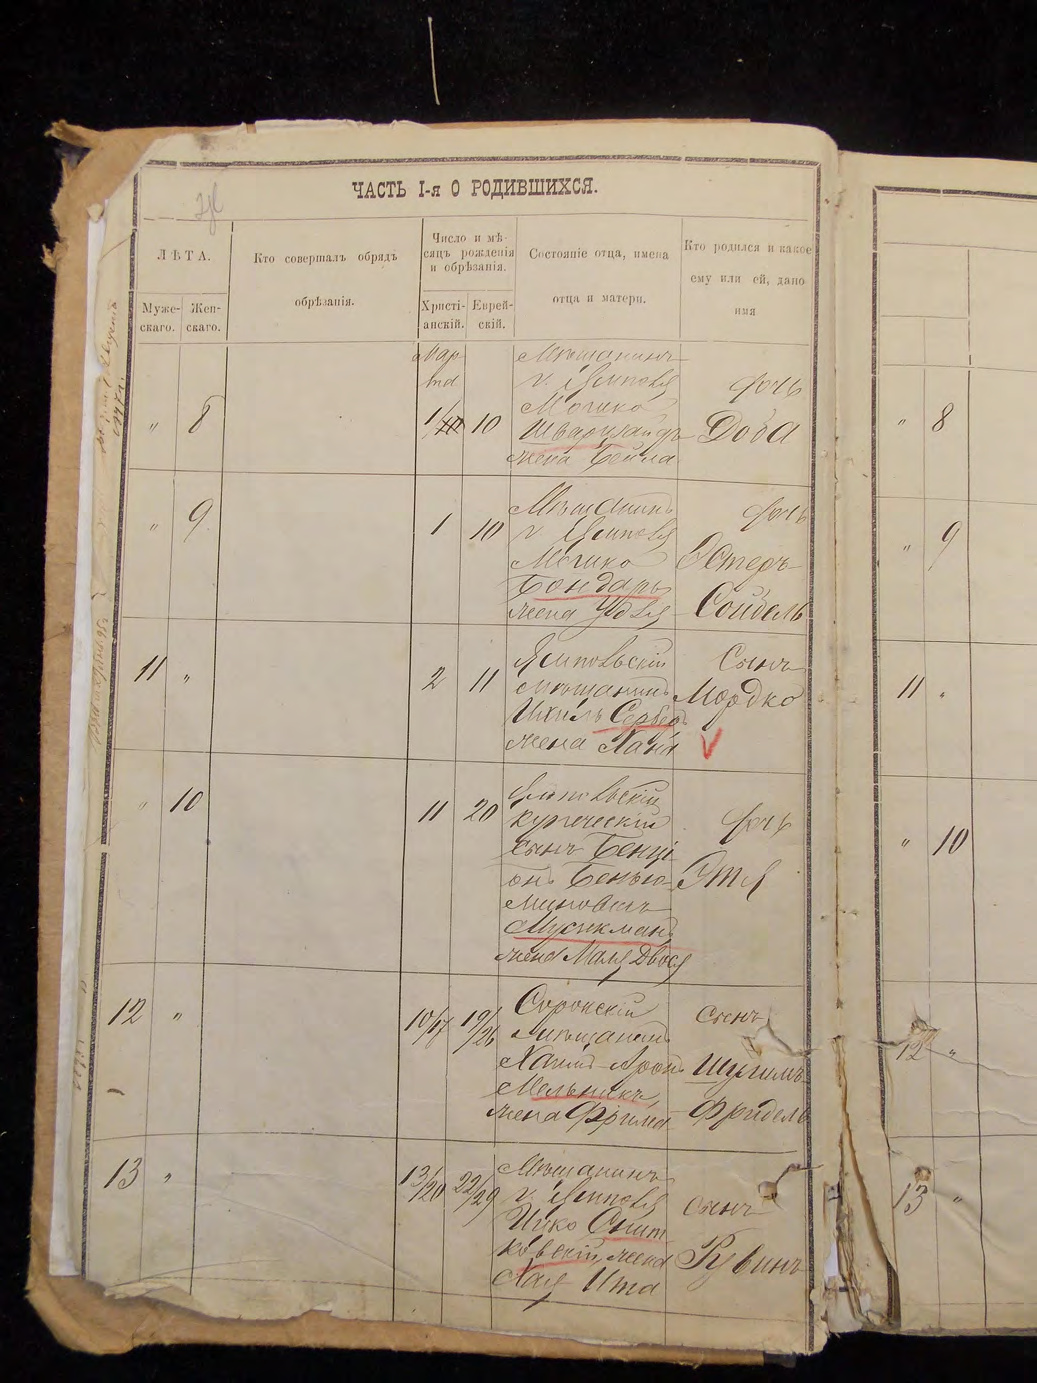 ЧАСТЬ I-я О РОДИВШИХСЯ.
ЛѢТА.
Муже-
скаго.
Жен-
скаго.
Кто совершалъ обрядъ
обрѣзанія.
Число и мѣ-
сяцъ рожденія
и обрѣзанія.
Христі-
анскій.
Еврей-
скій.
Состояніе отца, имена
отца и матери.
Кто родился и какое
ему или ей, дано
имя
Мар
та
„ 8 1/ 10
Мѣщанинъ
г. Ямполя
Мошко
жена Бейла
дочь
Доба
„ 9 1 10
Мѣщанинъ
г. Ямполя
Мошко
Бондарь
жена Удля
дочь
Эстеръ
Сойдель
11 „ 2 11
Ямпольскій
мѣщанинъ
Ихиль Сербер
жена Хана
Сынъ
Мордко
„ 10 11 20
Ямпольскій
купеческій
сынъ Бенці
онъ Беньіо-
миновичъ
Мусикманъ
жена Маля Двося
дочь
Этя
12 „ 10/17 19/26
Сорокскій
мѣщанинъ
Хаимъ Аронъ
Мельникъ
жена Фрима
сынъ
Шулимъ
Фридель
13 „ 13/20 22/29
Мѣщанинъ
г. Ямполя
Ицко Снит
ковскій жена
Хая Ита
сынъ
Рувинъ
„ 8
„ 9
11 „
„ 10
12 „
13 „